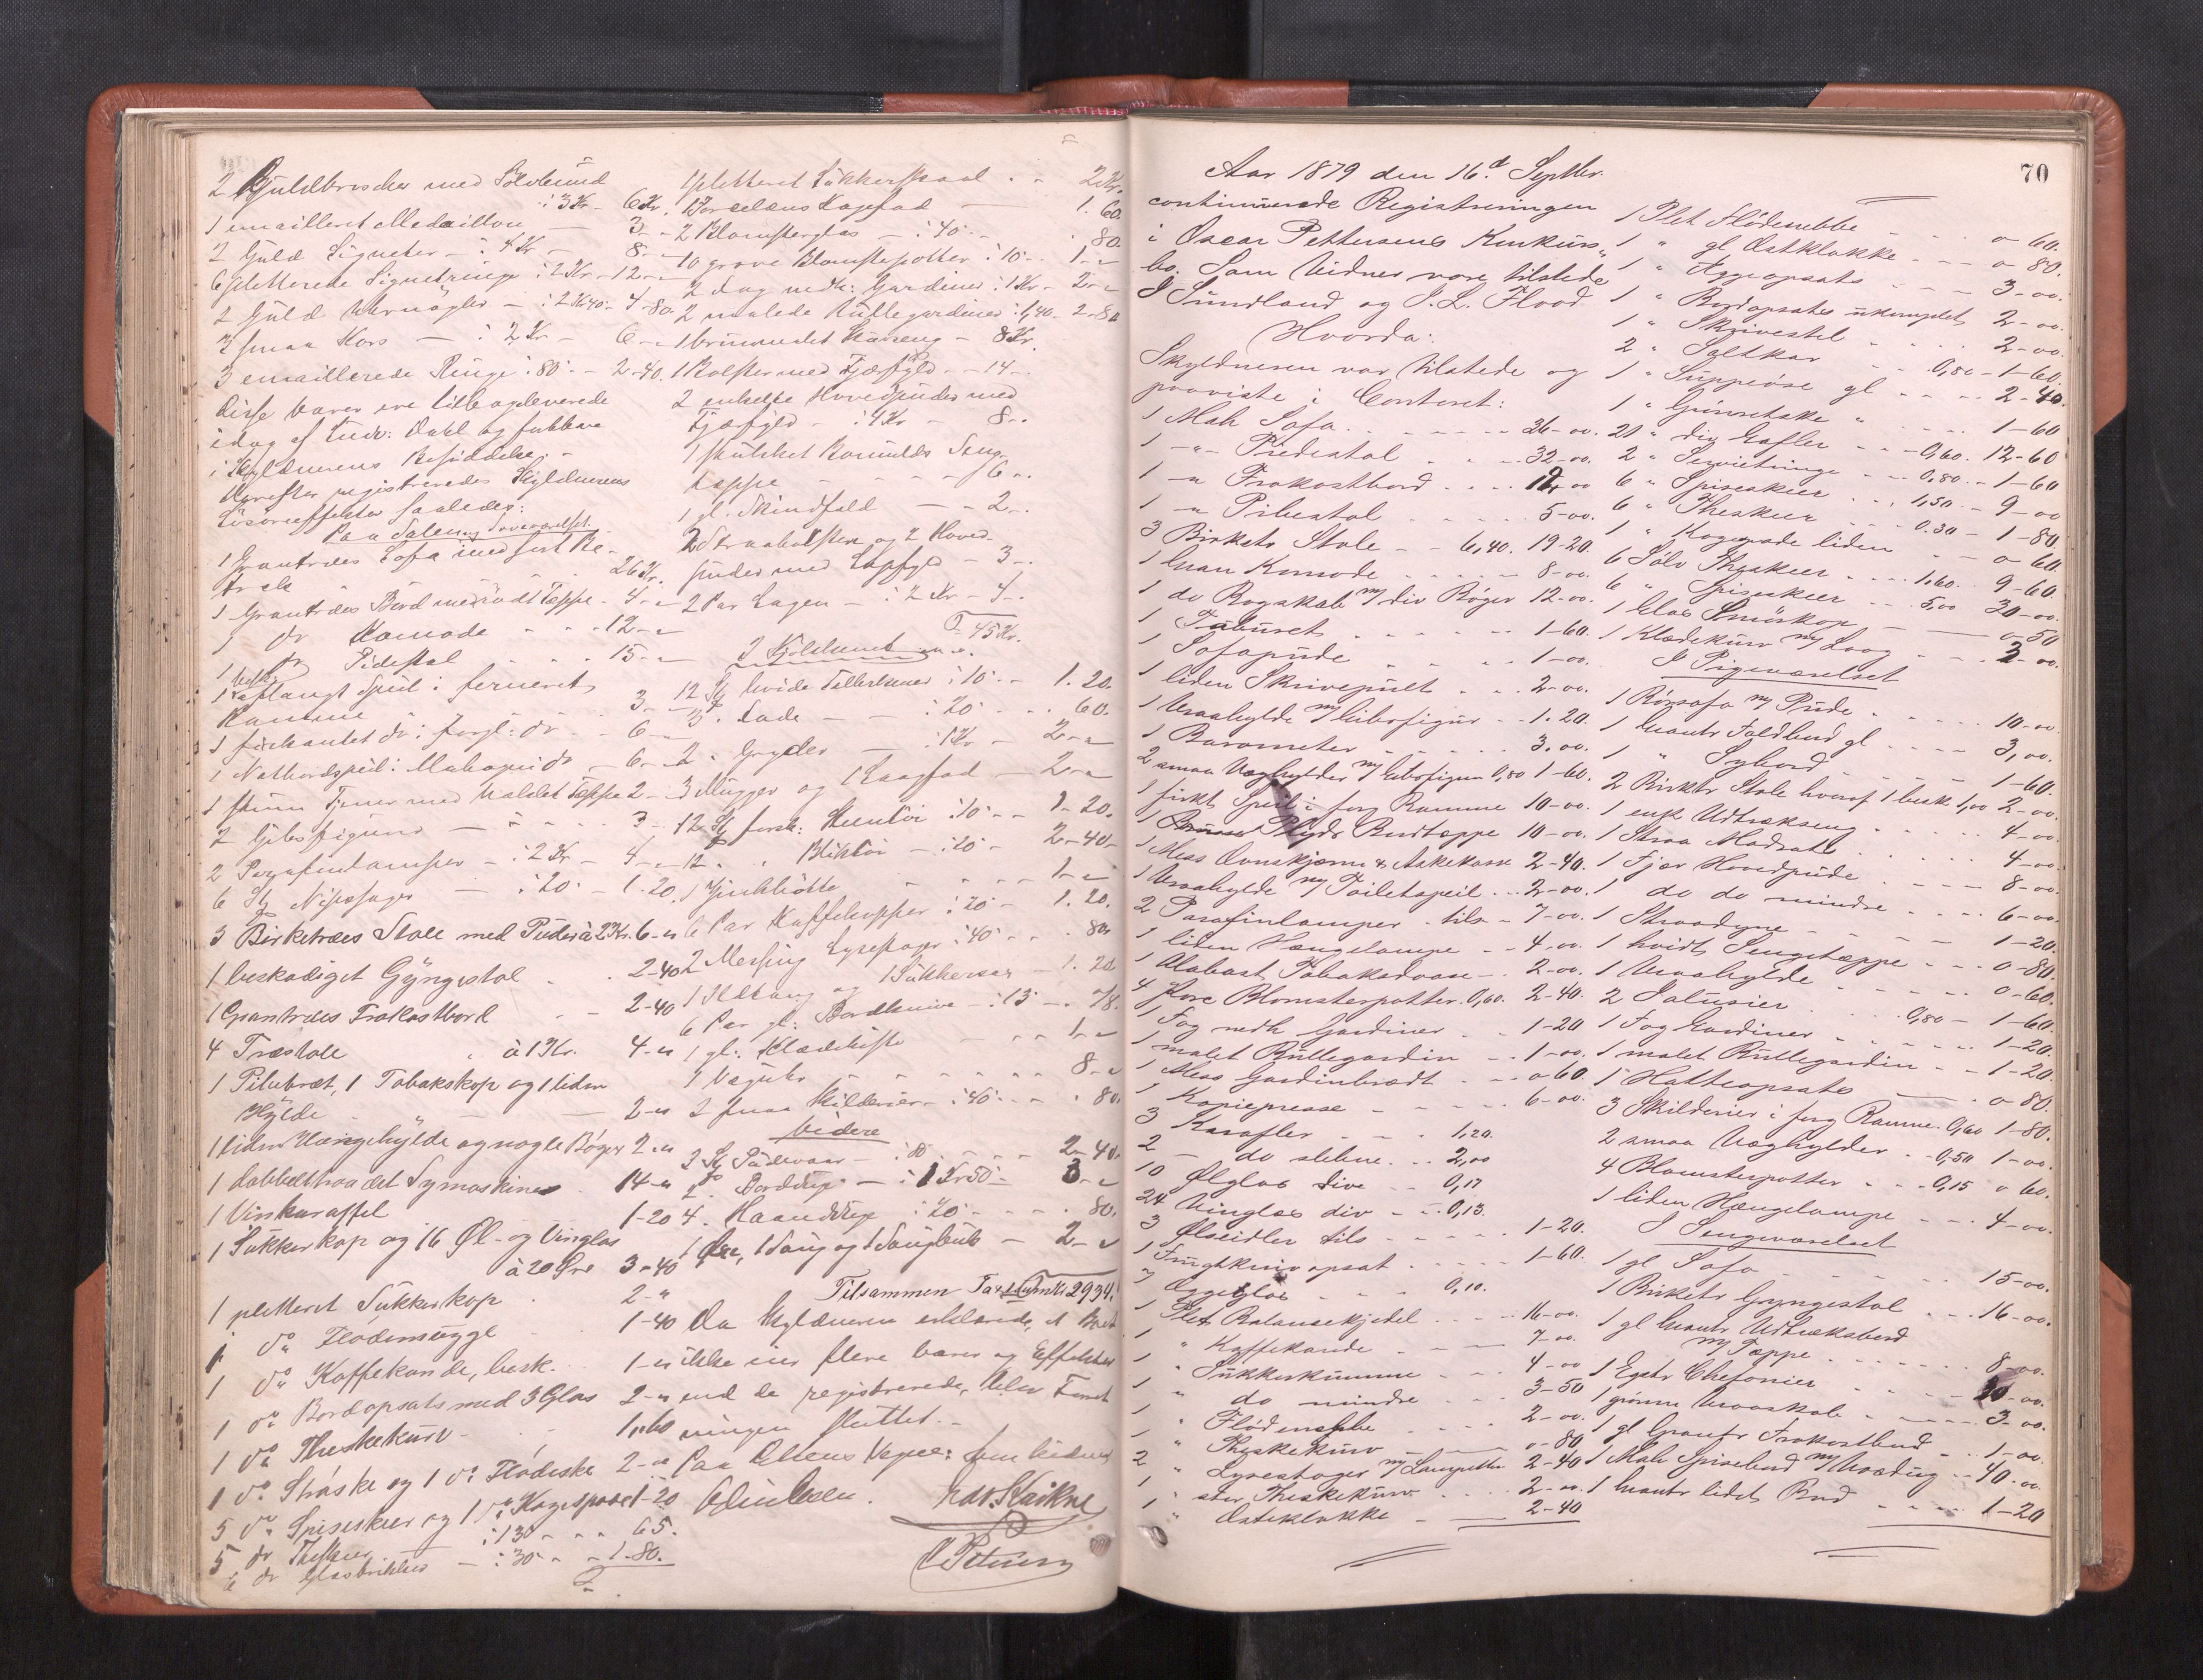 2 Guldbrocher med Sölvbund
: 3 Kr - 6 Kr.
1 emailleret Medaillon - 3 -
2 Guld Signeter - : 4 Kr - 8 -
6 pletterede Signetringe : 2 Kr - 12 -
2 Guld Uhrnögler - : 2 Kr 40 - 4-80
3 smaa Kors - : 2 Kr - 6 -
3 emaillerede Ringe : 80 - 2-40.
Disse Varer ere tilbageleverede
idag af Dahl og
i Skyldnerens Besiddelse. -
Derefter registreredes Skyldnerens
Lösöreeffekter saaledes:
Paa Salen og Soveværelset.
1 Grantræes Sofa med sort Be-
træk 26 Kr.
1 Grantræes Bord med rödt Tæppe - 4 -
1 do Komode - 12 -
1 do Pidestal 15 -
1 aflangt Speil i ferneret
Ramme 3 -
1 firkantet do i forgl: do - 6 -
1 Natbordspeil i Mahogni do - 6 -
1 Tjener med Tæppe 2 -
2 Gibsfigurer - 3 -
2 Parafinlamper - : 2 Kr - 4 -
6 St Nipssager - : 20 - 1.20
3 Birketræes Stole med Puder à 2 Kr. 6 -
1 beskadiget Gyngestol 2-40
1 Grantræes Frokostbord 2-40
4 Træstole à 1 Kr. 4 -
1 Pibebræt, 1 Tobakskop og 1 liden
Hylde 2 -
1 liden Hængehylde og nogle Bøger 2 -
1 dobbelttraadet Symaskine 14 -
1 Vinkaraffel 1-20
1 Sukkerkop og 16 Øl- og Vinglas
à 20 Øre 3-40
1 pletteret Sukkerkop 2 -
1 do Flödemugge 1-40
1 do Kaffekande, besk. 1 -
1 do Bordopsats med 3 Glas 2 -
1 do Theskekurv 1.60
1 do Ströske og 1 do Flödeske 2 -
5 do Spiseskeer og 1 do Kagespade 1-20
5 do Theskeer : 130 - 65.
6 do Glasbrikker - : 30 - 1-80.
1 pletteret Sukkerskaal 2 Kr.
1 Porcelæns Kagefad - 1.60
2 Blomsterglas - : 40 - 80
10 grove Blomsterpotter : 10 - 1 -
2 Fag nedh: Gardiner : 1 Kr - 2 -
2 malede Rullegardiner : 1,40 - 2-80
1 brunmalet Seng - 8 Kr.
1 Bolster med Fjærfyld - 14 -
2 enkelte Hovedpuder med
Fjærfyld - : 4 Kr - 8 -
1 Bomulds Seng-
tæppe - 6 -
1 gl. Skindfeld - 2 -
2 Straabolstere og 2 Hoved-
puder med Lopfyld - 3 -
2 Par Lagen - : 2 Kr - 4 -
45 Kr.
I Kjökkenet
12 St hvide Tallerkener : 10 - 1.20
3 " Fade - : 20 - 60
2 " Gryder - : 1 Kr - 2 -
3 Mugger og 1 Kaagfad - 2 -
12 St forsk: Steentöi : 10 - 1-20.
12 " " Bliktöi - : 20 - 2-40
1 Zinkbötte 1 -
6 Par Kaffekopper : 20 - 1.20.
2 Messing Lysestager : 40 - 80
1 Ildtang og 1 Sukkersax - 1.20
6 Par gl: Bordknive - : 13 - 78.
1 gl: Klædekiste 1 -
1 Væguhr 8 -
2 smaa Skilderier - : 40 - 80.
Videre
3 St Pudevaar - : 80 - 2-40
2 " Bordduge - : 1 Kr 50 - 3 -
4 " Haandduge : 20 - 80.
1 Øxe, 1 Saug og 1 Saugbuk - 2 -
Tilsammen Taxt sum Kr 2934.
Da Skyldneren erklærede, at Boet
ikke eier flere Varer og Effekter
end de registrerede, blev Forret-
ningen sluttet. -
Paa Rettens Vegne: som Vidner
C Petersen
70
Aar 1879 den 16d Septbr.
continuerede Registreringen
i Oscar Pettersens Konkurs-
bo. Som Vidner vare tilstede
I Sundland og J. L. Flood
Hvorda:
Skyldneren var tilstede og
paaviste i Contoret:
1 Mah Sofa 26-00.
1 -"- Pidestal 32-00.
1 -" Frokostbord 12-00
1 -" Pibestol 5-00.
3 Birketr Stole - 6,40. 19-20.
1 Gran Komode 8-00.
1 do Bogskab m/ div Bøger 12-00.
1 Taburet 1-60.
1 Sofapude 1-00.
1 liden Skrivepult 2-00.
1 Vraahylde m/ Gibsfigur 1.20.
1 Barometer 3.00.
2 smaa Væghylder m/ Gibsfigur 0,80 1-60.
1 firkt Speil i forg Ramme 10-00.
1 Plyds Bordtæppe 10-00.
1 Mess Ovnskjærm & Askekasse 2-40.
1 Vraahylde m/ Toiletspeil 2-00.
2 Parafinlamper tils - 7-00.
1 liden Hængelampe 4-00.
1 Alabast Tobaksdaase - 2-00.
4 Porc Blomsterpotter 0,60. 2-40.
1 Fag nedh Gardiner 1-20
1 malet Rullegardin 1-00.
1 Mess Gardinbrædt 0-60.
1 Kopiepresse 6-00.
3 Karafler 1,20.
2 - do slebne 2,00
10 Ølglas dive 0,17
24 Vinglas div 0,13.
3 Ølseidler tils 1-20.
1 Frugtknivopsat 1-60.
7 Æggeglas 0,10.
1 Plet Balancekjedel 16-00.
1 " Kaffekande 7-00.
1 " Sukkerkumme 4-00
1 " do mindre 3-50
1 " Flødenebbe 2-00.
1 " Theskekurv 0-80
2 " Lysestager m/ Lampetter 2-40
1 " stor Theskekurv 2-00.
1 " Osteklokke 2-40
1 Plet Flödenebbe 0-60.
1 " gl Ostklokke 0-80.
1 " Æggeopsats 3-00.
1 " Bordopsats ukomplet 2-00.
1 " Skrivestel 2-00.
2 " Saltkar 0,80-1-60.
1 " Suppeøse gl 2-40.
1 " Grönnetske " 1-60
21 " div Gafler 0,60. 12-60
2 " Servietringe 0.80 - 1-60
6 " Spiseskeer 1,50 - 9-00
6 " Theskeer 0.30 - 1-80
1 " Kagespade liden 0-60
6 Sölv Theskeer 1.60. 9-60.
6 " Spiseskeer 5,00 30-00.
1 Glas Smörkop 0-50
1 Klædekurv m/ Laag 2-00.
I Pigeværelset
1 Rörsofa m/ Pude 10-00
1 Grantr Foldbord gl 3,00.
1 " Sybord 1-60.
2 Birketr Stole hvoraf 1 besk 1,00 2-00.
1 enk Udtrækseng 4-00
1 Straa Madrats 4-00
1 Fjær Hovedpude 8-00.
1 do do mindre 6-00.
1 Straadyne 1-20.
1 hvidt Sengetæppe 0-80.
1 Vraahylde 0-60.
2 Jalusier 0,80 - 1-60.
1 Fag Gardiner 1-20.
1 malet Rullegardin 1-20.
1 Hatteopsats 0-80.
3 Skilderier i forg Ramme 0,60 1-80.
2 smaa Væghylder 0,50 1-00.
4 Blomsterpotter 0,15 0 60.
1 liden Hængelampe 4-00.
I Sengeværelset
1 gl Sofa 15-00.
1 Birketr Gyngestol 16-00.
1 gl Grantr Udtræksbord
m/ Tæppe 8-00.
1 Egetr Chefonier 20-00.
1 grönm Vraaskab 3-00.
1 gl Grantr Frokostbord 1-00.
1 Mah Spisebord m/ Voxdug 40-00.
1 Grantr lidet Bord 1-20